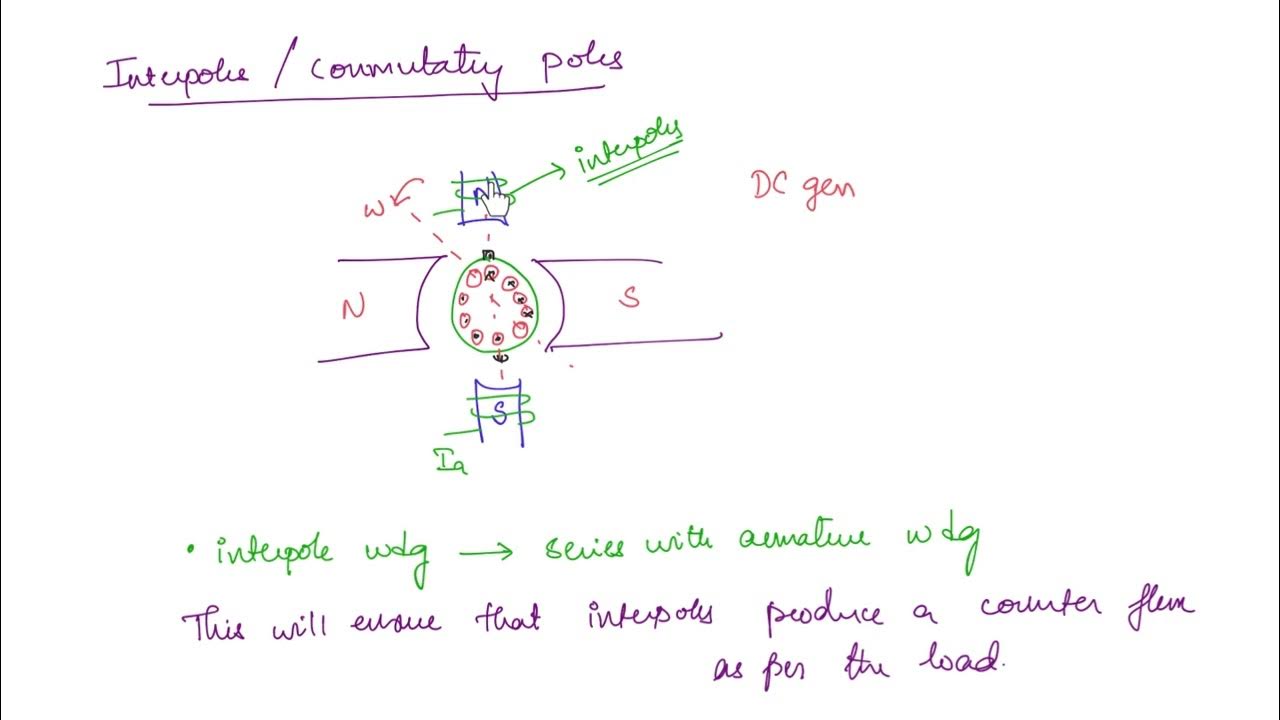 Interpoles / commutatig poles
interpoles
DC gen
w
N
N
S
S
Ia
• interpole wdg → series with armature wdg
This will ensure that interpoles produce a counter flux
as per the load.